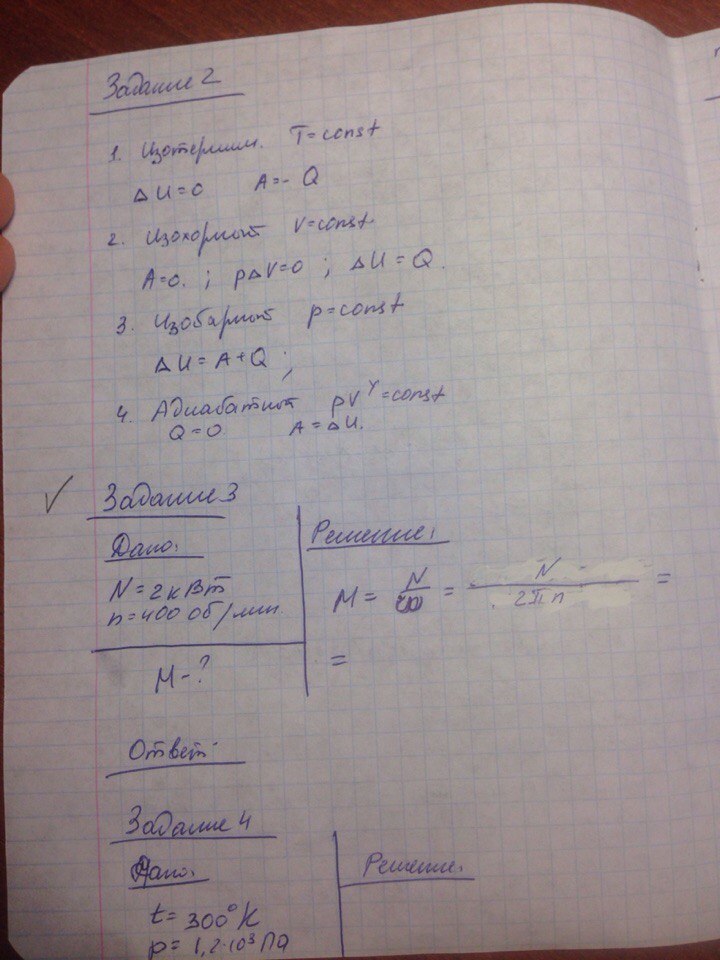 Задание 2
1. Изотермич. T=const
ΔU=0 A=-Q
2. Изохорный V=const
A=0. ; pΔV=0 ; ΔU=Q.
3. Изобарный p=const
ΔU=A+Q ;
4. Адиабатный pV^γ=const
Q=0 A=ΔU.
Задание 3
Дано:
N=2кВт
n=400 об/мин.
M-?
Решение:
M= N/ω = N/2πn =
=
Ответ:
Задание 4
Дано:
t=300°K
p=1,2·10³ Па
Решение: